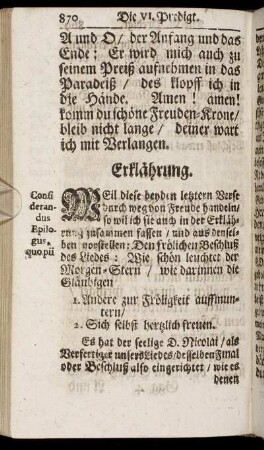 870 Die VI. Predigt.
A und O/ der Anfang und das
Ende: Er wird mich auch zu
seinem Preiß aufnehmen in das
Paradeiß / des klopff ich in
die Hände. Amen! amen!
komm du schöne Freuden-Krone/
bleib nicht lange / deiner wart
ich mit Verlangen.
Erklährung.
Consi
deran-
dus
Epilo-
gus,
quo pii
WEil diese beyden letztern Verse
durch weg von Freude handeln/
so wil ich sie auch in der Erkläh-
rung zusammen fassen / und aus densel-
ben vorstellen: Den frölichen Beschluß
des Liedes: Wie schön leuchtet der
Morgen-Stern / wie darinnen die
Gläubigen
1. Andere zur Fröligkeit auffmun-
tern/
2. Sich selbst hertzlich freuen.
Es hat der seelige D. Nicolai/ als
Verfertiger unsers Liedes/ desselben Final
oder Beschluß also eingerichtet / wie es
denen